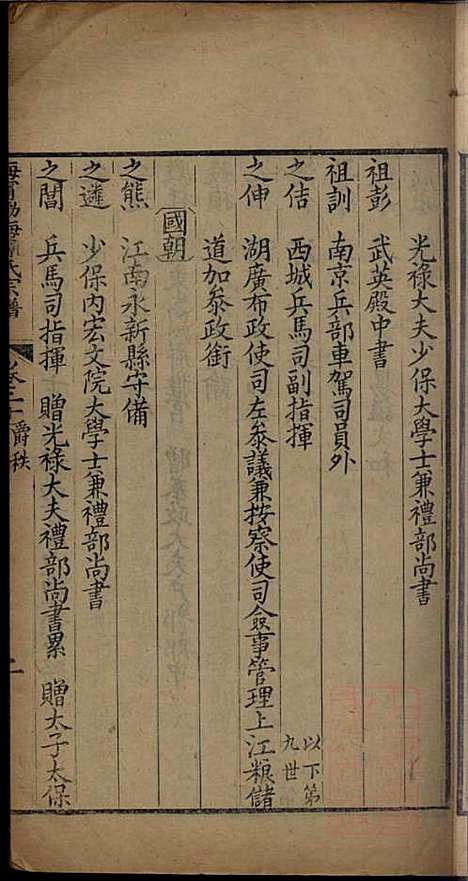 光祿大夫少保大學士兼禮部尚書
祖彭 武英殿中書
祖訓 南京兵部車駕司員外
之佶 西城兵馬司副指揮
之伸 湖廣布政使司左參議兼按察使司僉事管理上江粮儲
以下第
九世
道加叅政銜
國朝
之熊 江南永新縣守備
之遴 少保内宏文院大學士兼禮部尚書
之誾 兵馬司指揮 贈光祿大夫禮部尚書累 贈太子太保
海寧渤海陳氏宗譜 卷二十 爵秩 二